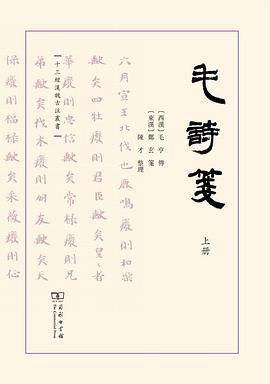 毛詩箋
上册
[西漢] 毛亨 傳
[東漢] 鄭玄 箋
陳才 整理
十三經漢魏古注叢書
六月宣王北伐也鹿鳴廢則和樂
缺矣四牡廢則君臣缺矣皇〻者
華廢則忠信缺矣常棣廢則兄
弟缺矣伐木廢則朋友缺矣天
保廢則福祿缺矣采薇廢則征
商務印書館
The Commercial Press